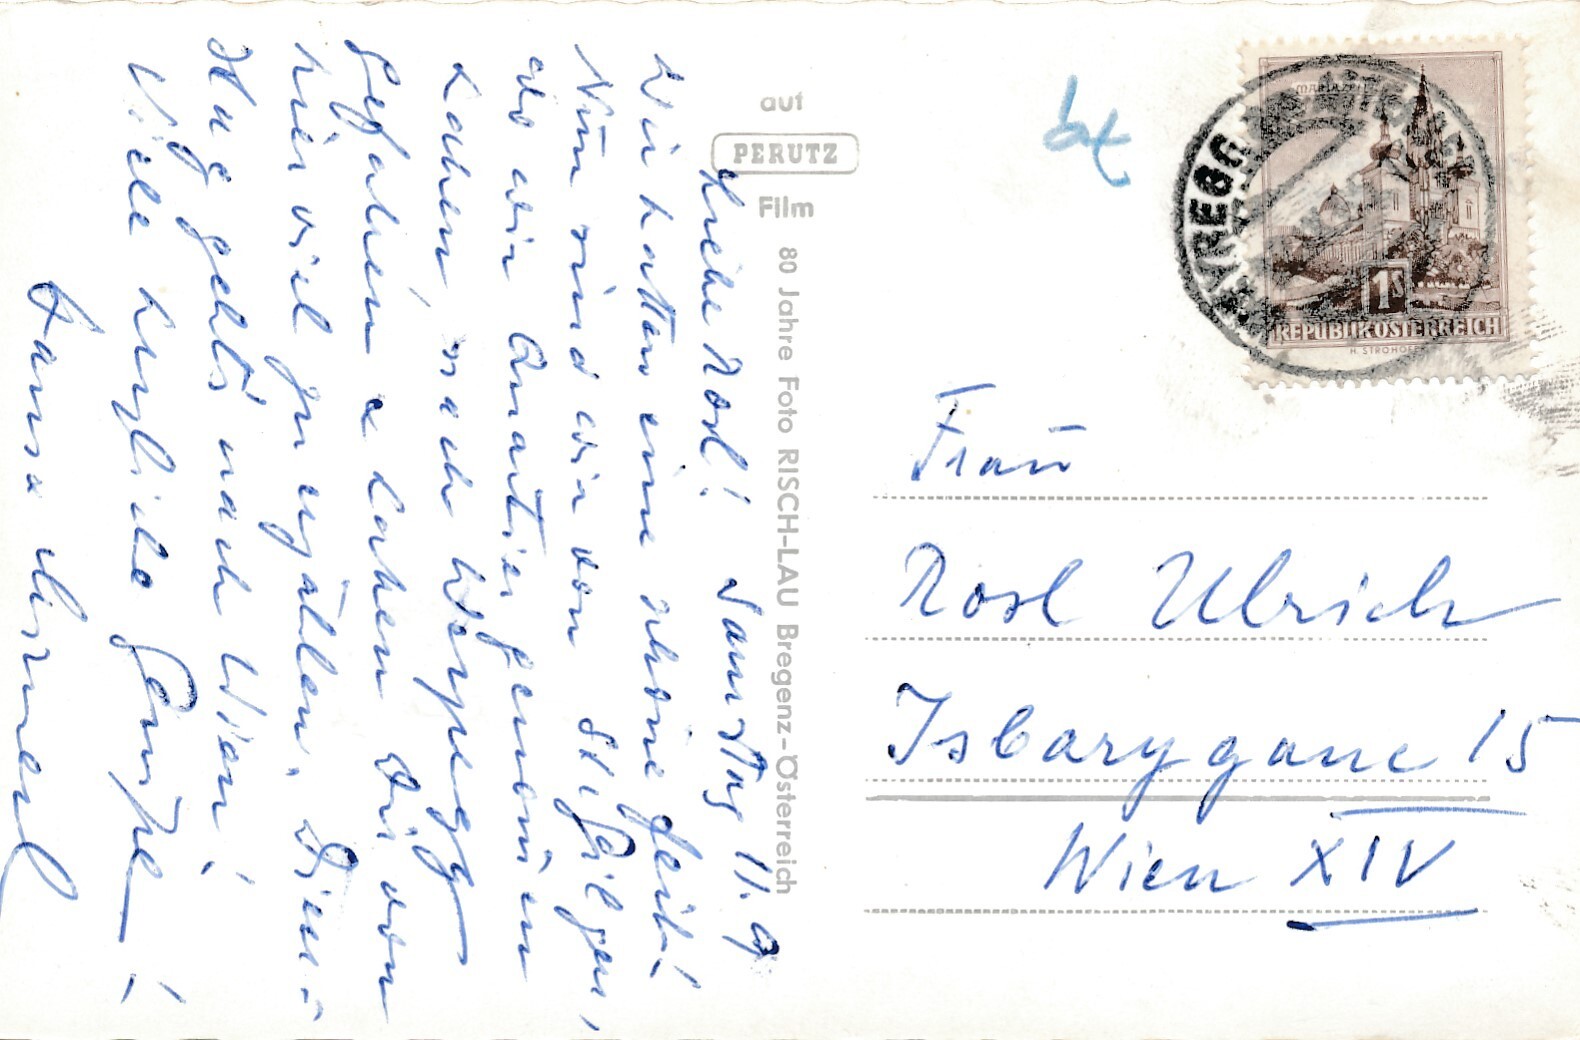 Liebe Rosl! Samstag 11. 9.
Wir hatten eine schöne Zeit!
Nun sind wir von St. Gilgen,
wo wir Quartier genommen
haben, nach Weyregg
gefahren u. haben Dir von
hier viel zu erzählen. Diens-
tag gehts nach Wien!
Viele herzliche Grüße
Hansa
auf
PERUTZ
Film
80 Jahre Foto RISCH-LAU Bregenz-Österreich
MARIAZELL
1S
REPUBLIK ÖSTERREICH
WEYREGG
Frau
Rosl Ulrich
Isbarygasse 15
Wien XIV